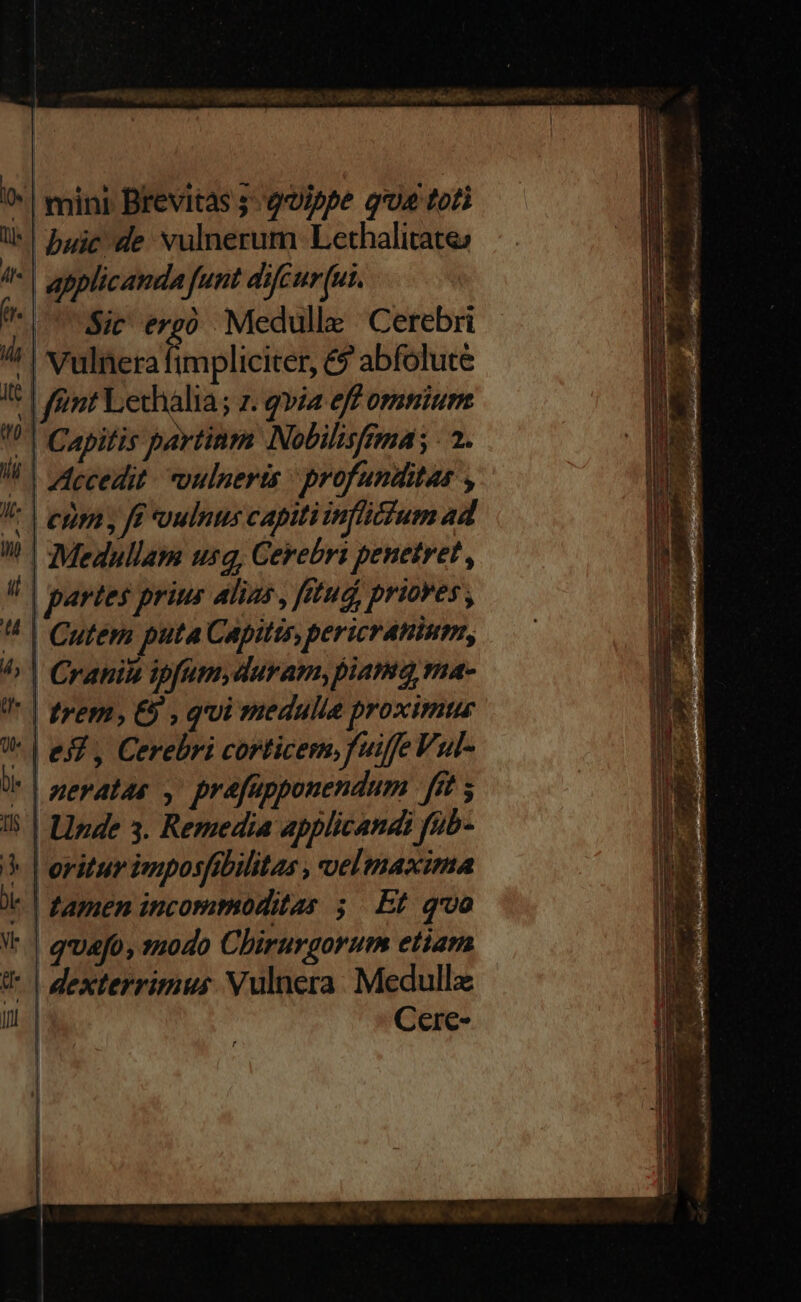 mini Brevitas ; qvippe qvæ toti
huic de vulnerum Lethalitate,
applicanda ſunt diſcurſui.
Sic ergò Medullæ Cerebri
Vulnera ſimpliciter, & abſolutè
ſunt Lethalia; 1. qvia eſt omnium
Capitis partium Nobilisſima; 2.
Accedit vulneris profunditas,
cùm, ſi vulnus capiti inflictum ad
Medullam usq, Cerebri penetret,
partes prius alias, ſituq́, priores,
Cutem puta Capitis, pericranium,
Craniũ ipſum, duram, piamq́, ma-
trem, & , qvi medullæ proximus
eſt, Cerebri corticem, fuiſſe Vul-
neratas , præſupponendum ſit ;
Unde 3. Remedia applicandi ſub-
oritur imposſibilitas, vel maxima
tamen incommoditas ; Et qvo
qvæſo, modo Chirurgorum etiam
dexterrimus Vulnera Medullæ
Cere-